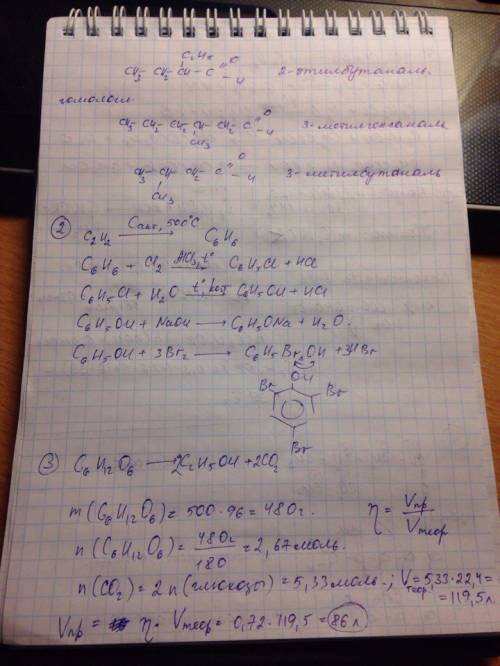 C₂H₅
CH₃ - CH₂ - CH - C =O -H 2-этилбутаналь
гомологи:
CH₃ CH₂ CH₂ CH - CH₂ - C =O -H 3-метилгексаналь
CH₃
CH₃ - CH - CH₂ - C =O -H 3-метилбутаналь
CH₃
② C₂H₂ ⟶ Cакт, 500°C C₆H₆
C₆H₆ + Cl₂ ⟶ AlCl₃, t° C₆H₅Cl + HCl
C₆H₅Cl + H₂O ⟶ t°, кат C₆H₅OH + HCl
C₆H₅OH + NaOH ⟶ C₆H₅ONa + H₂O.
C₆H₅OH + 3Br₂ ⟶ OH + 3HBr
OH
Br Br
Br
③ C₆H₁₂O₆ ⟶ 2C₂H₅OH + 2CO₂
m(C₆H₁₂O₆) = 500·96 = 480г. η = Vпр/Vтеор
n(C₆H₁₂O₆) = 480г/180 = 2,67моль.
n(CO₂) = 2n(глюкозы) = 5,33моль.; Vтеор = 5,33·22,4 =
= 119,5л
Vпр = η·Vтеор = 0,72·119,5 = 86л